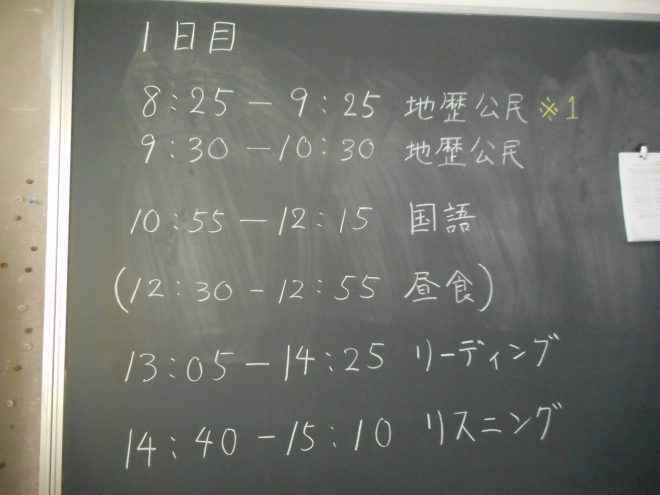 1日目
8:25 − 9:25 地歴公民 ※1
9:30 − 10:30 地歴公民
10:55 − 12:15 国語
(12:30 - 12:55 昼食)
13:05 − 14:25 リーディング
14:40 − 15:10 リスニング